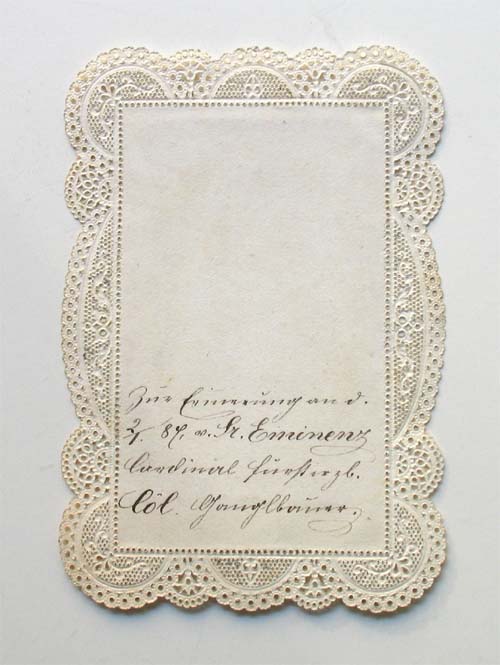 Zur Erinnerung an d.
2/1. 87. v. Sr. Eminenz
Cardinal Fürsterzb.
Cöl. Ganglbauer.